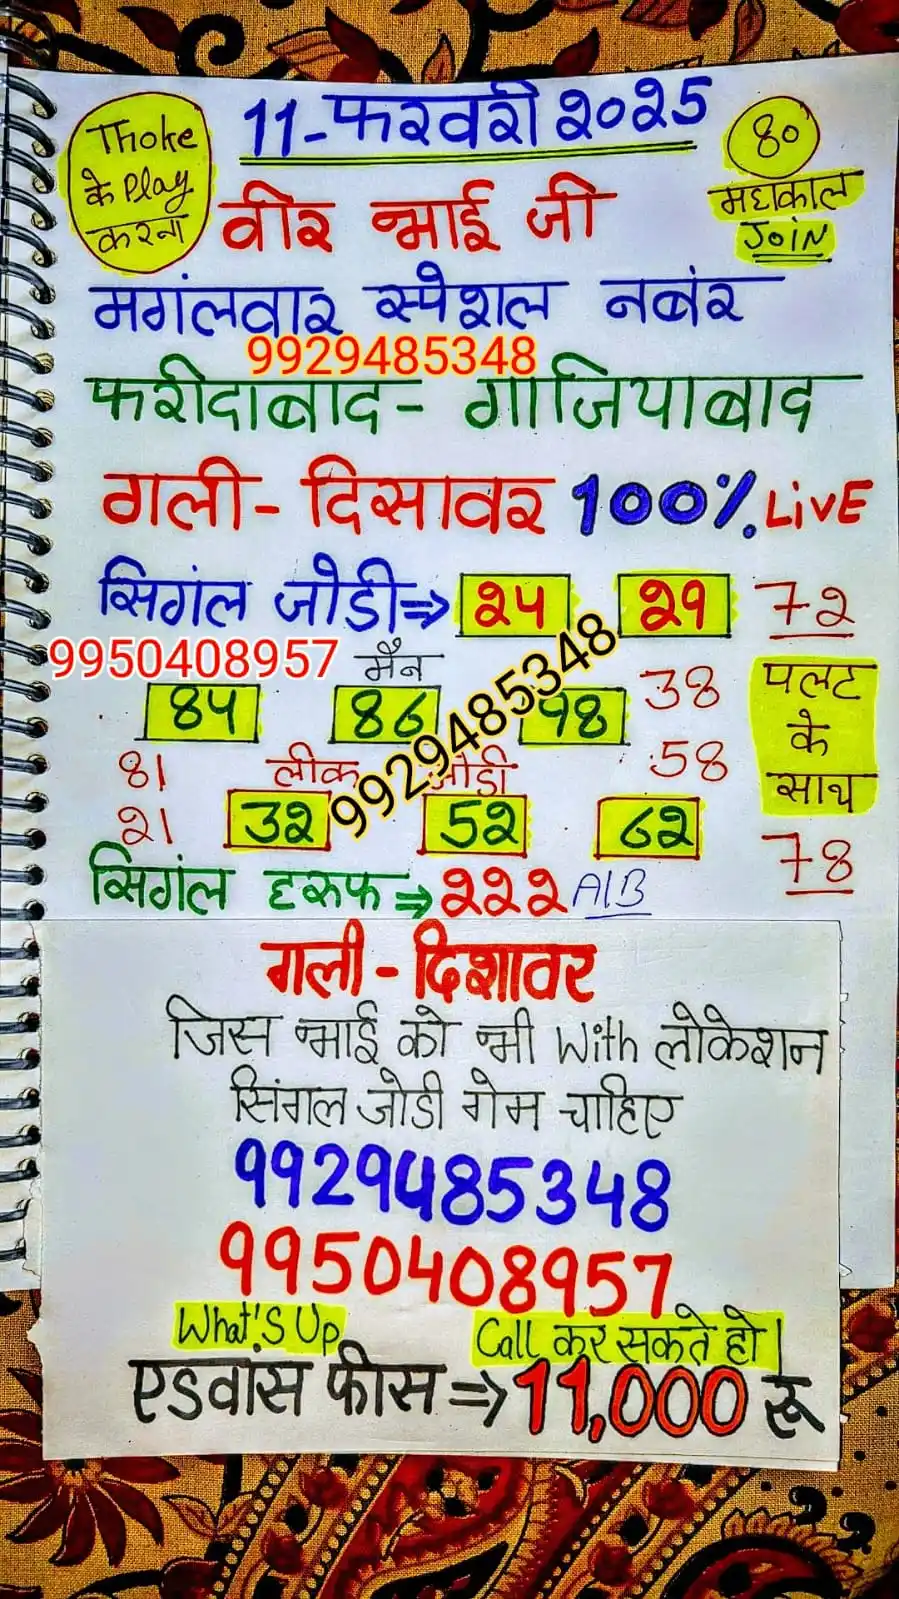 11-फरवरी २०२5
Thoke
के Play
करना
80
महाकाल
JOiN
वीर भाई जी
मगंलवार स्पेशल नबंर
9929485348
फरीदाबाद- गाजियाबाद
गली- दिसावर 100% LivE
सिगंल जोडी⇒ २५ २९ 7२
9950408957
मैन
84 86 98 38
पलट
के
साथ
9929485348
81 लीक जोडी 58
२1 3२ 5२ ८२
78
सिगंल हरुफ⇒ २२२ A/B
गली - दिशावर
जिस भाई को भी With लोकेशन
सिंगल जोडी गेम चाहिए
9929485348
9950408957
What'S Up Call कर सकते हो|
एडवांस फीस ⇒ 11,000 रू